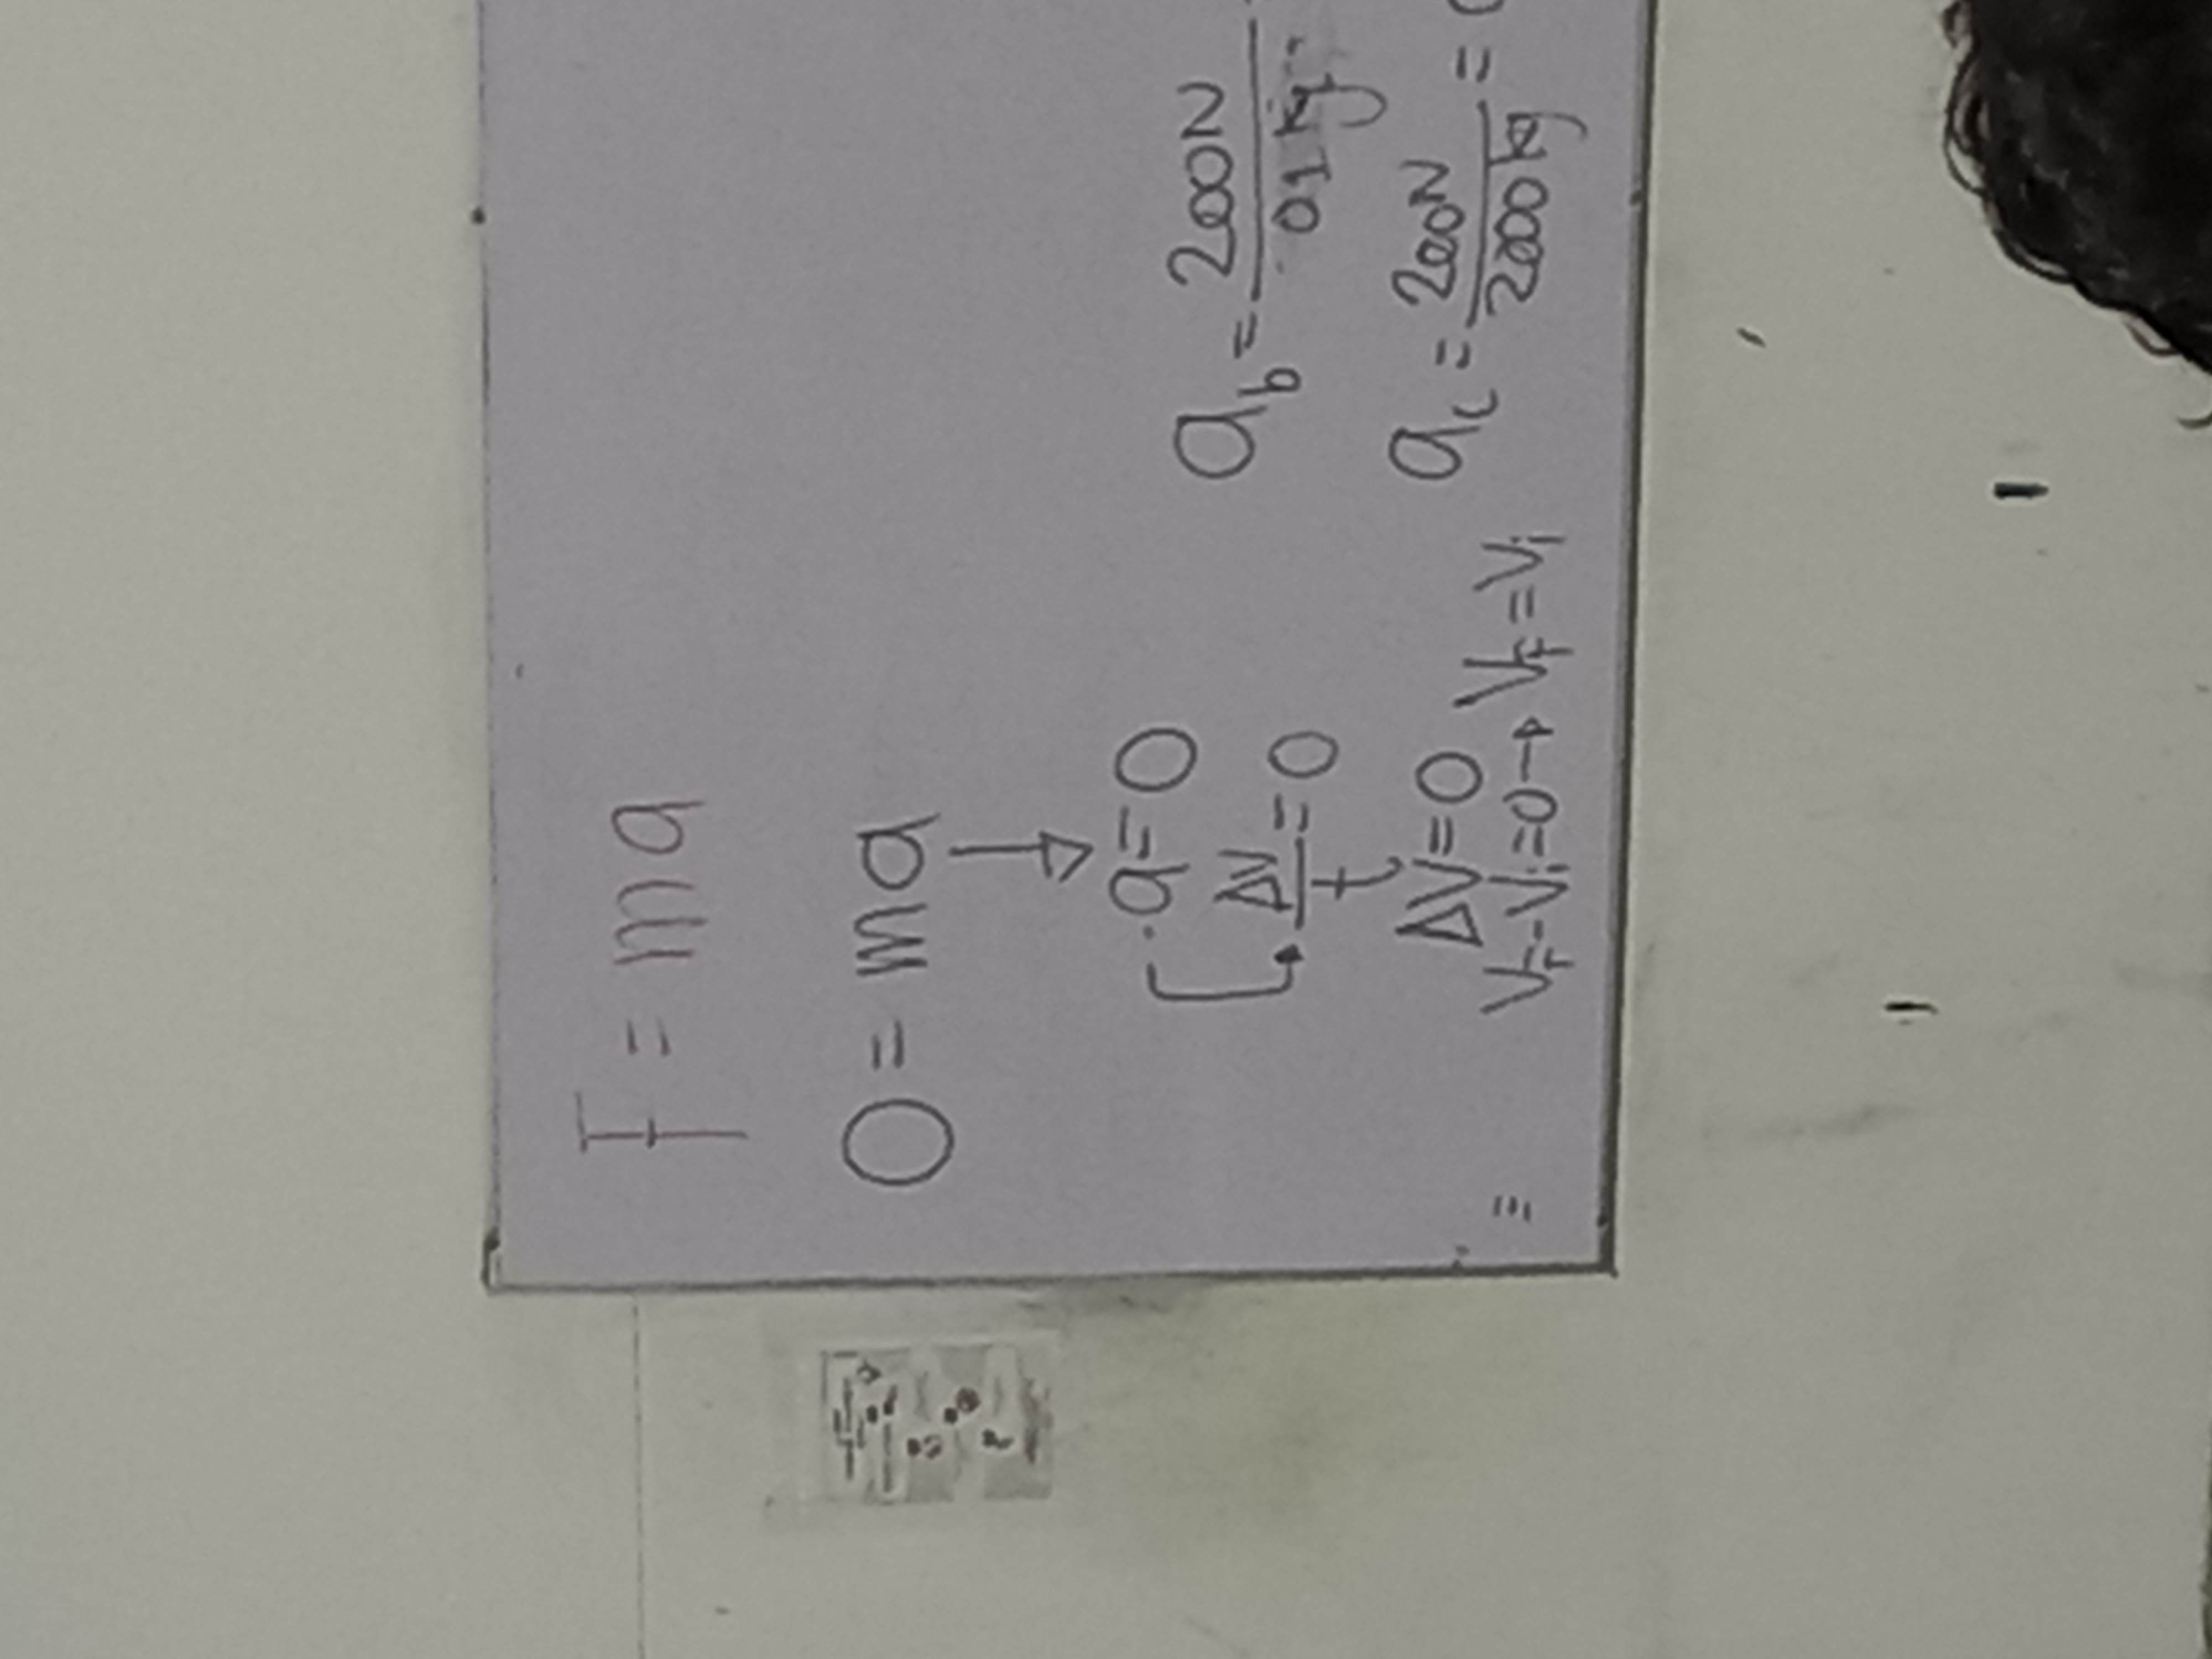 F = ma
0 = ma
a=0
ΔV/t=0
ΔV=0
V_F-V_i=0→V_F=V_i
a_b=200N/01kg
a_c=200N/2000kg=